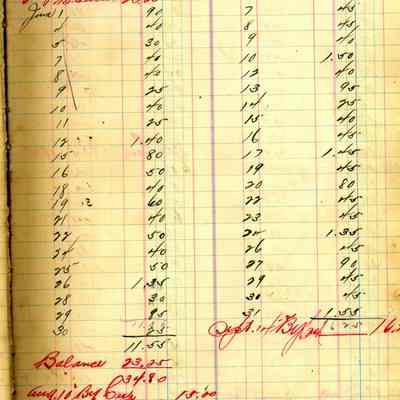 June 1 90
40
5 30
7 40
8 40
9 25
10 40
11 25
12 1.40
15 80
16 50
18 40
19 60
21 40
22 50
24 40
25 50
26 1.35
28 30
29 85
30
11.55
Balance 23.25
34.80
Aug. 10 By 15.00
7 45
8 45
9 40
10 1.50
12 40
13 95
14 25
15 40
16 45
17 1.45
19 45
20 80
22 45
23 45
24 1.35
26 45
27 90
29 45
30 45
31 1.55
Sept. 14 By